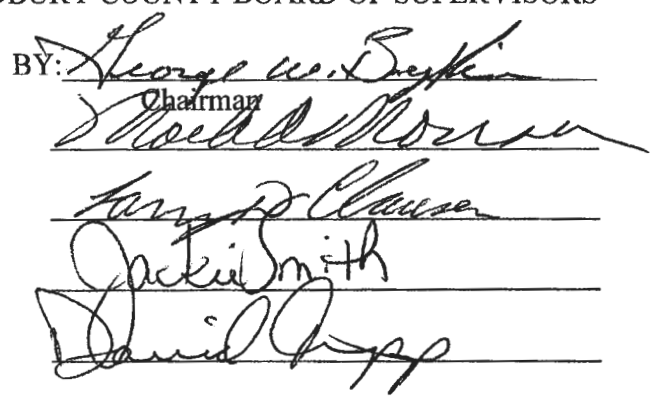 DBURY COUNTY BOARD OF SUPERVISORS
BY: George W. Boykin
Chairman
Monson
Larry D Clausen
Jackie Smith
David Tripp